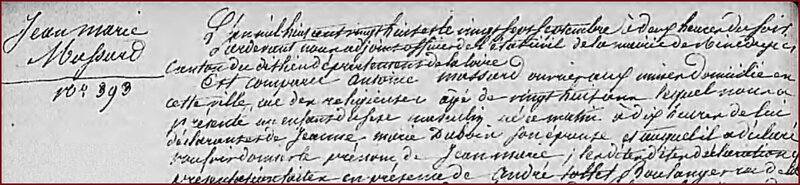 Jean marie
Massard
No 393
L'an mil huit cent vingt huit et le vingt sept septembre à deux heures du soir
Pardevant nous adjoint officier de l'état civil de la mairie de
canton du dit lieu département de la Loire
Est comparu Antoine Massard ouvrier aux mines domicilié en
cette ville, rue des religieuses âgé de vingt huit ans lequel nous a
présenté un enfant du sexe masculin né ce matin à dix heures de lui
déclarant et de Jeanne marie Duboin son épouse et auquel il a déclaré
vouloir donner le prénom de Jean marie; les dites déclaration et
présentation faites en présence de André Boulanger rue de la